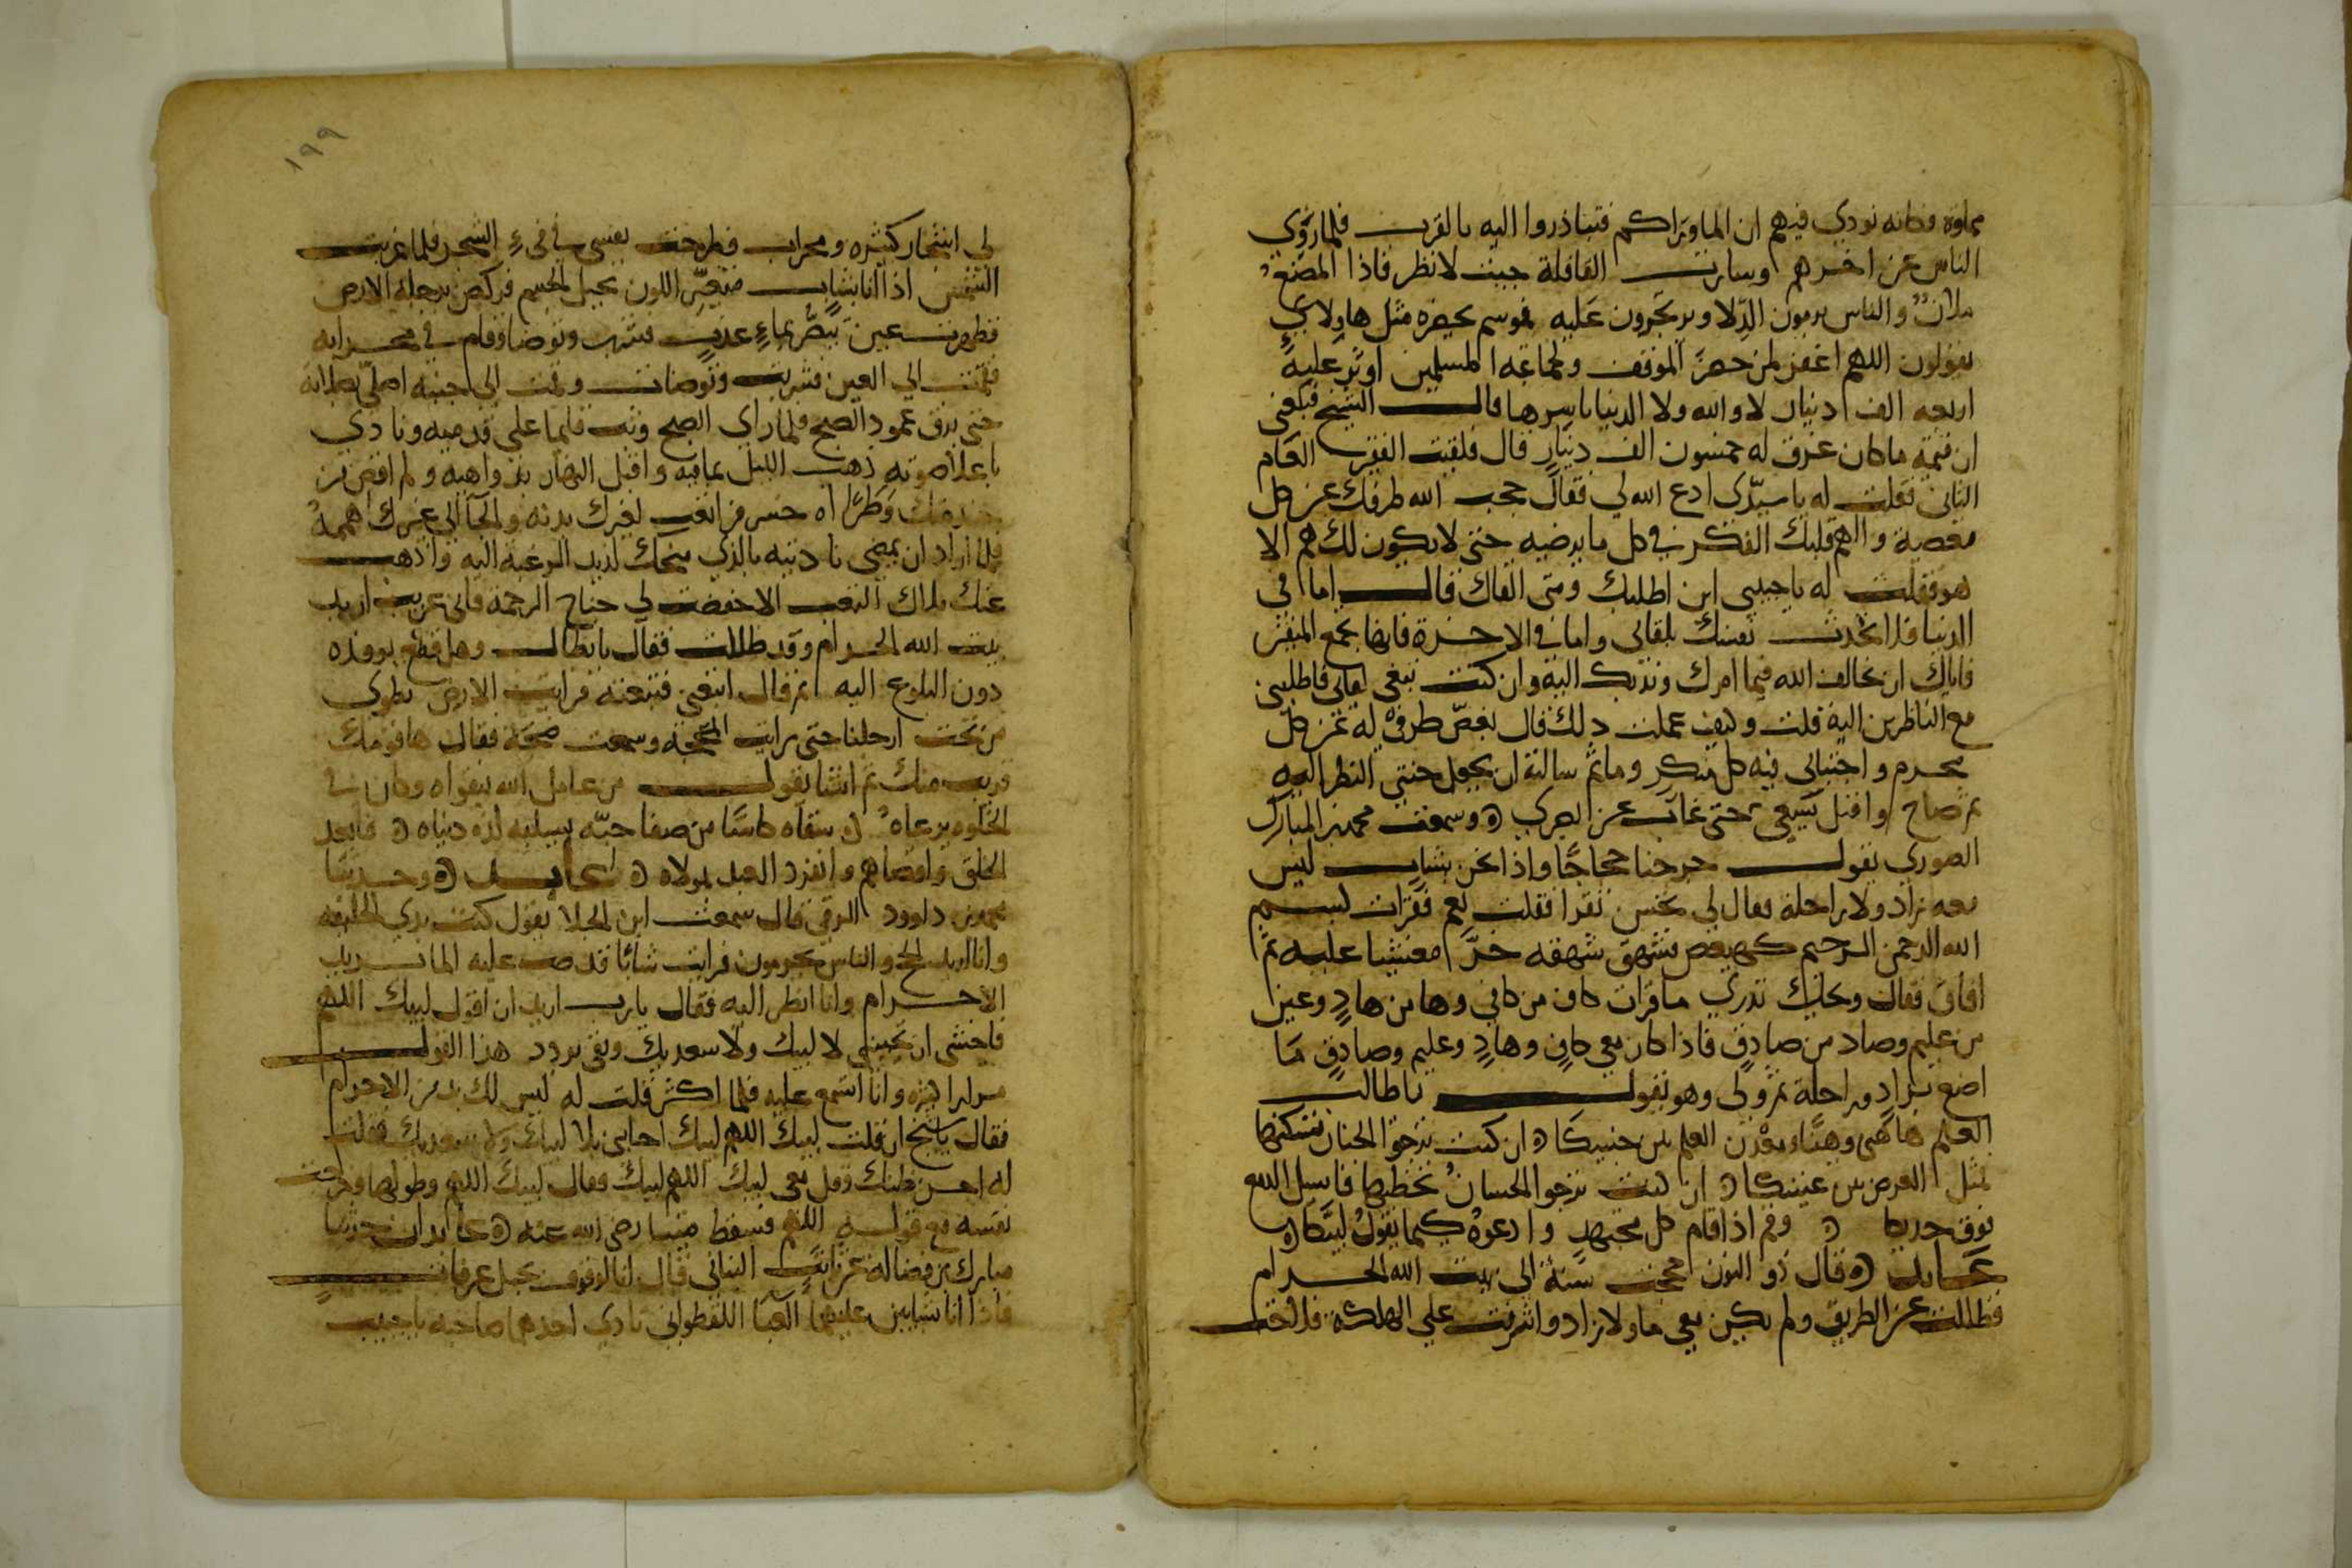 مملوة وكانه نودي فيهم ان الما وراكم فتبادروا اليه بالقرب فلما روي
الناس عن اخرهم وسارت القافلة جيت لانظر فاذا المصنع
ملان والناس يرمون الدلا ويرتجزون عليه فموسم يحضره مثل هاولاي
يقولون اللهم اغفر لمن حضر الموقف ولجماعة المسلمين اوثر عليه
اربعه الف دينار لا والله ولا الدنيا باسرها قال الشيخ فبلغني
ان قيمة ما كان غرق له خمسون الف دينار قال فلقيت الفقير العام
الثاني فقلت له يا سيدي ادع الله لي فقال حجب الله طرفك عن كل
معصية والهم قلبك الفكر في كل ما يرضيه حتى لا يكون لك هم الا
هو فقلت له يا حبيبي اين اطلبك ومتى القاك قال اما في
الدنيا فلا تحدث نفسك بلقاي واما في الاخرة فانها تجمع المتقين
فاياك ان تخالف الله فيما امرك وندبك اليه وان كنت تبغي لقاي فاطلبني
مع الناظرين اليه قلت وكيف عملت ذلك قال بغض طرفي له عن كل
محرم واجتنابي فيه كل منكر وماثم سالته ان يجعل جنتي النظر اليه
ثم صاح واقبل يسعى حتى غاب عن بصري وسمعت محمد بن المبارك
الصوري يقول خرجنا حجاجا واذا نحن بشاب ليس
معه زاد ولا راحلة فقال لي تحسن تقرا فقلت نعم فقرات بسم
الله الرحمن الرحيم كهيعص فشهق شهقه خر مغشيا عليه ثم
افاق فقال ويحك تدري ما قرات كاف من كافي وها من هاد وعين
من عليم وصاد من صادق فاذا كان معي كاف وهاد وعليم وصادق ما
اصنع بزاد وراحلة ثم ولى وهو يقول يا طالب
العلم هاهنى وهنا ومعدن العلم بين جنبيكا ان كنت ترجوا الجنان تسكنها
فمثل العرض بين عينيكا ان كنت ترجوا الحسان تخطبها فاسبل الدمع
فوق خديكا وقم اذا قام كل مجتهد وادعوه كيما يقول لبيكا
عابد قال ذو النون حججت سنة الى بيت الله الحرام
فظللت عن الطريق ولم يكن معي ما ولا زاد واشرفت على الهلكة فلاحت
١٩٩
لي اشجار كثيره ومحراب فطرحت نفسي في فيء الشجر فلما غربت
الشمس اذا انا بشاب متغير اللون نحيل الجسم فركض برجله الارض
فظهرت عين تبض بماء عذب فشرب وتوضا وقام في محرابه
فقمت الى العين فشربت وتوضات وقمت الى جنبه اصلي بصلاته
حتى برق عمود الصبح فلما راى الصبح وثب قايما على قدميه ونادي
باعلا صوته ذهب الليل بما فيه واقبل النهار بدواهيه ولم اقض من
خدمتك وطرا اه خسر من اتعب لغيرك بدنه والجا الى غيرك هممه
فلما اراد ان يمضي ناديته بالذي منحك لذيذ الرغبة اليه واذهب
عنك ملال التعب الا خفضت لي جناح الرحمة فاني غريب اريد
بيت الله الحرام وقد ظللت فقال يا بطال وهل قطع بوفده
دون البلوغ اليه ثم قال اتبعني فتبعته فرايت الارض تطوى
من تحت ارجلنا حتى رايت المحجة وسمعت ضجة فقال ها قومك
قريب منك ثم انشا يقول من عامل الله بتقواه وكان في
الخلوه يرعاه سقاه كاسا من صفا حبه يسلبه لذه دنياه فابعد
الخلق واقصاهم وانفرد العبد بمولاه عابد وحدثنا
محمد بن داوود الرقي قال سمعت ابن الجلا يقول كنت بذي الحليفه
وانا اريد الحج والناس يحرمون فرايت شابا قد صب عليه الما يريد
الاحرام وانا انظر اليه فقال يا رب اريد ان اقول لبيك اللهم
فاخشى ان تجيبني لا لبيك ولا سعديك وبقي يردد هذا القول
مرارا كثيره وانا اتسمع عليه فلما اكثر قلت له ليس لك بد من الاحرام
فقال يا شيخ ان قلت لبيك اللهم لبيك اجابني بلا لبيك ولا سعديك فقلت
له احسن ظنك وقل معي لبيك اللهم لبيك فقال لبيك اللهم وطولها وخرجت
نفسه مع قوله اللهم فسقط ميتا رضي الله عنه عابدان حدثنا
مبارك بن فضالة عن ثابت البناني قال انا لوقوف بجبل عرفات
فاذا انا بشابين عليهما العبا القطواني نادي احدهما صاحبه يا حبيب